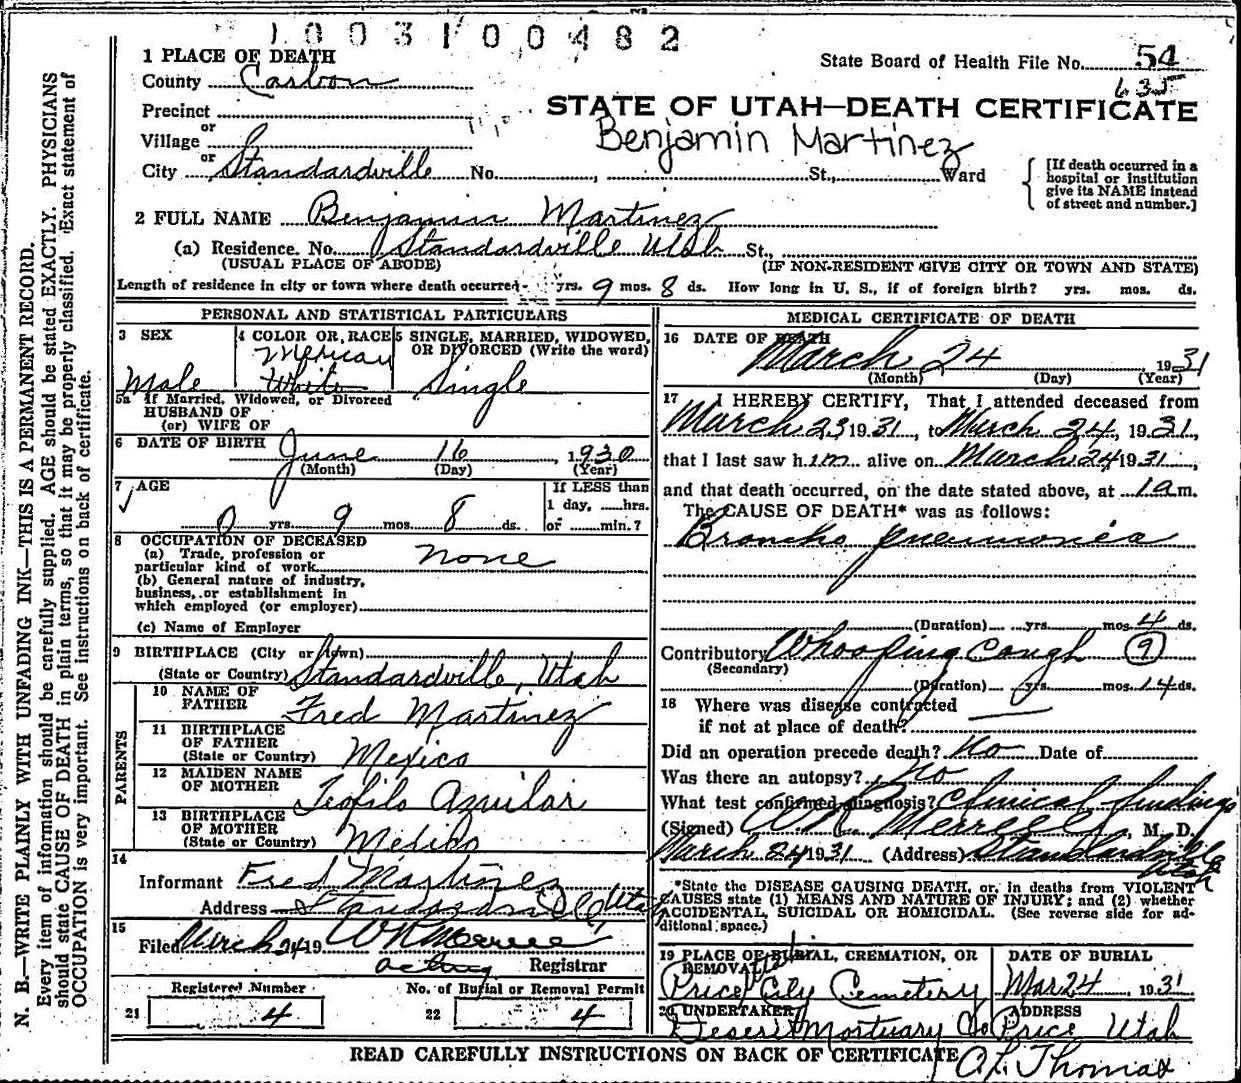 1003100482
1 PLACE OF DEATH
County Carbon
State Board of Health File No. 54
635
Precinct
STATE OF UTAH—DEATH CERTIFICATE
or
Village
Benjamin Martinez
or
City Standardville No. , St., Ward
[If death occurred in a hospital or institution give its NAME instead of street and number.]
2 FULL NAME Benjamin Martinez
(a) Residence. No. Standardville Utah St.,
(USUAL PLACE OF ABODE) (IF NON-RESIDENT GIVE CITY OR TOWN AND STATE)
Length of residence in city or town where death occurred - yrs. 9 mos. 8 ds. How long in U. S., if of foreign birth? yrs. mos. ds.
PERSONAL AND STATISTICAL PARTICULARS
3 SEX
Male
4 COLOR OR RACE
Mexican
White
5 SINGLE, MARRIED, WIDOWED, OR DIVORCED (Write the word)
Single
5a If Married, Widowed, or Divorced
HUSBAND OF
(or) WIFE OF
6 DATE OF BIRTH June 16, 1930
(Month) (Day) (Year)
7 AGE
0 yrs. 9 mos. 8 ds.
If LESS than
1 day, hrs.
or min.?
8 OCCUPATION OF DECEASED
(a) Trade, profession or
particular kind of work none
(b) General nature of industry,
business, or establishment in
which employed (or employer)
(c) Name of Employer
9 BIRTHPLACE (City or town)
(State or Country) Standardville, Utah
PARENTS
10 NAME OF
FATHER Fred Martinez
11 BIRTHPLACE
OF FATHER
(State or Country) Mexico
12 MAIDEN NAME
OF MOTHER Teofilo Aguilar
13 BIRTHPLACE
OF MOTHER
(State or Country) Mexico
14
Informant Fred Martinez
Address Standardville Utah
15
Filed March 24 19 WR Merrell
acting Registrar
Registered Number No. of Burial or Removal Permit
21 4 22 4
MEDICAL CERTIFICATE OF DEATH
16 DATE OF DEATH
March 24 1931
(Month) (Day) (Year)
17 I HEREBY CERTIFY, That I attended deceased from
March 23 1931, to March 24, 1931,
that I last saw him alive on March 24 1931,
and that death occurred, on the date stated above, at 1 a m.
The CAUSE OF DEATH* was as follows:
Broncho pneumonia
(Duration) yrs. mos. 4 ds.
Contributory Whooping Cough 9
(Secondary)
(Duration) yrs. mos. 14 ds.
18 Where was disease contracted
if not at place of death?
Did an operation precede death? No Date of
Was there an autopsy? No
What test confirmed diagnosis? Clinical findings
(Signed) WR Merrell, M. D.
March 24 1931 (Address) Standardville Utah
*State the DISEASE CAUSING DEATH, or, in deaths from VIOLENT
CAUSES state (1) MEANS AND NATURE OF INJURY; and (2) whether
ACCIDENTAL, SUICIDAL OR HOMICIDAL. (See reverse side for ad-
ditional space.)
19 PLACE OF BURIAL, CREMATION, OR
REMOVAL
Price City Cemetery
DATE OF BURIAL
Mar 24, 1931
20 UNDERTAKER
Deseret Mortuary Co
ADDRESS
Price Utah
READ CAREFULLY INSTRUCTIONS ON BACK OF CERTIFICATE
A. L. Thomas
N. B.—WRITE PLAINLY WITH UNFADING INK—THIS IS A PERMANENT RECORD.
Every item of information should be carefully supplied. AGE should be stated EXACTLY. PHYSICIANS
should state CAUSE OF DEATH in plain terms, so that it may be properly classified. Exact statement of
OCCUPATION is very important. See instructions on back of certificate.